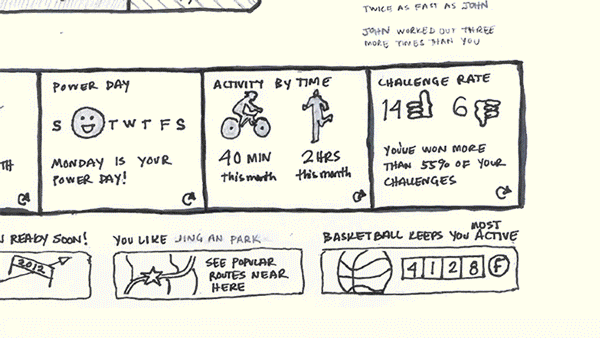 TWICE AS FAST AS JOHN
JOHN WORKED OUT THREE
MORE TIMES THAN YOU
POWER DAY
S T W T F S
MONDAY IS YOUR
POWER DAY!
ACTIVITY BY TIME
40 MIN
this month
2 HRS
this month
CHALLENGE RATE
14 6
YOU'VE WON MORE
THAN 55% OF YOUR
CHALLENGES
READY SOON!
2012
YOU LIKE JING AN PARK
SEE POPULAR
ROUTES NEAR
HERE
BASKETBALL KEEPS YOU MOST ACTIVE
4 1 2 8 F